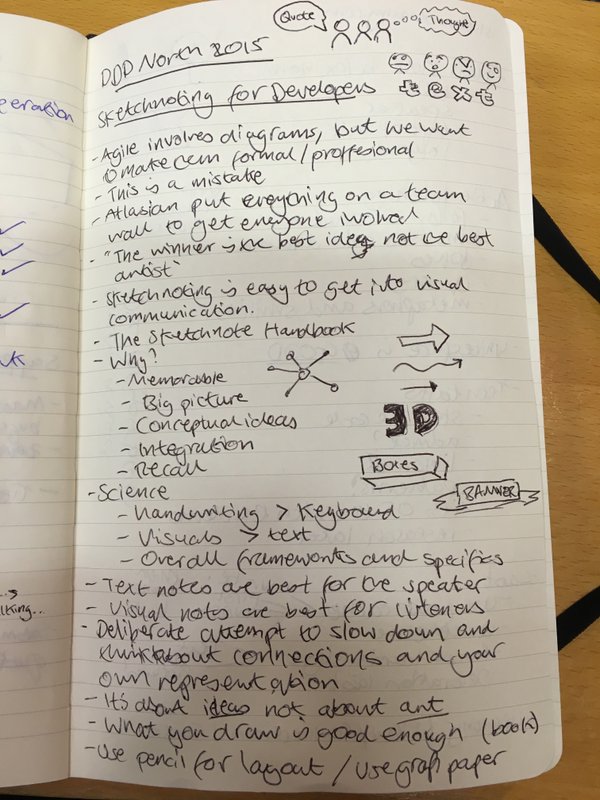 eration
Quote
Thought
DDD North 2015
text
Sketchnoting for Developers
- Agile involves diagrams, but we want
to make em formal / proffesional
- This is a mistake
- Atlasian put everything on a team
wall to get everyone involved
- "The winner is the best idea, not the best
artist"
- Sketchnoting is easy to get into visual
communication.
- The Sketchnote Handbook
- Why?
- Memorable
- Big picture
- Conceptual ideas
3D
- Integration
- Recall
Boxes
- Science
BANNER
- Handwriting > Keyboard
- Visuals > text
- Overall frameworks and specifics
- Text notes are best for the speaker
- Visual notes are best for listeners
- Deliberate attempt to slow down and
think about connections and your
own representation
- It's about ideas not about art
- What you draw is good enough (book)
- Use pencil for layout / use graph paper